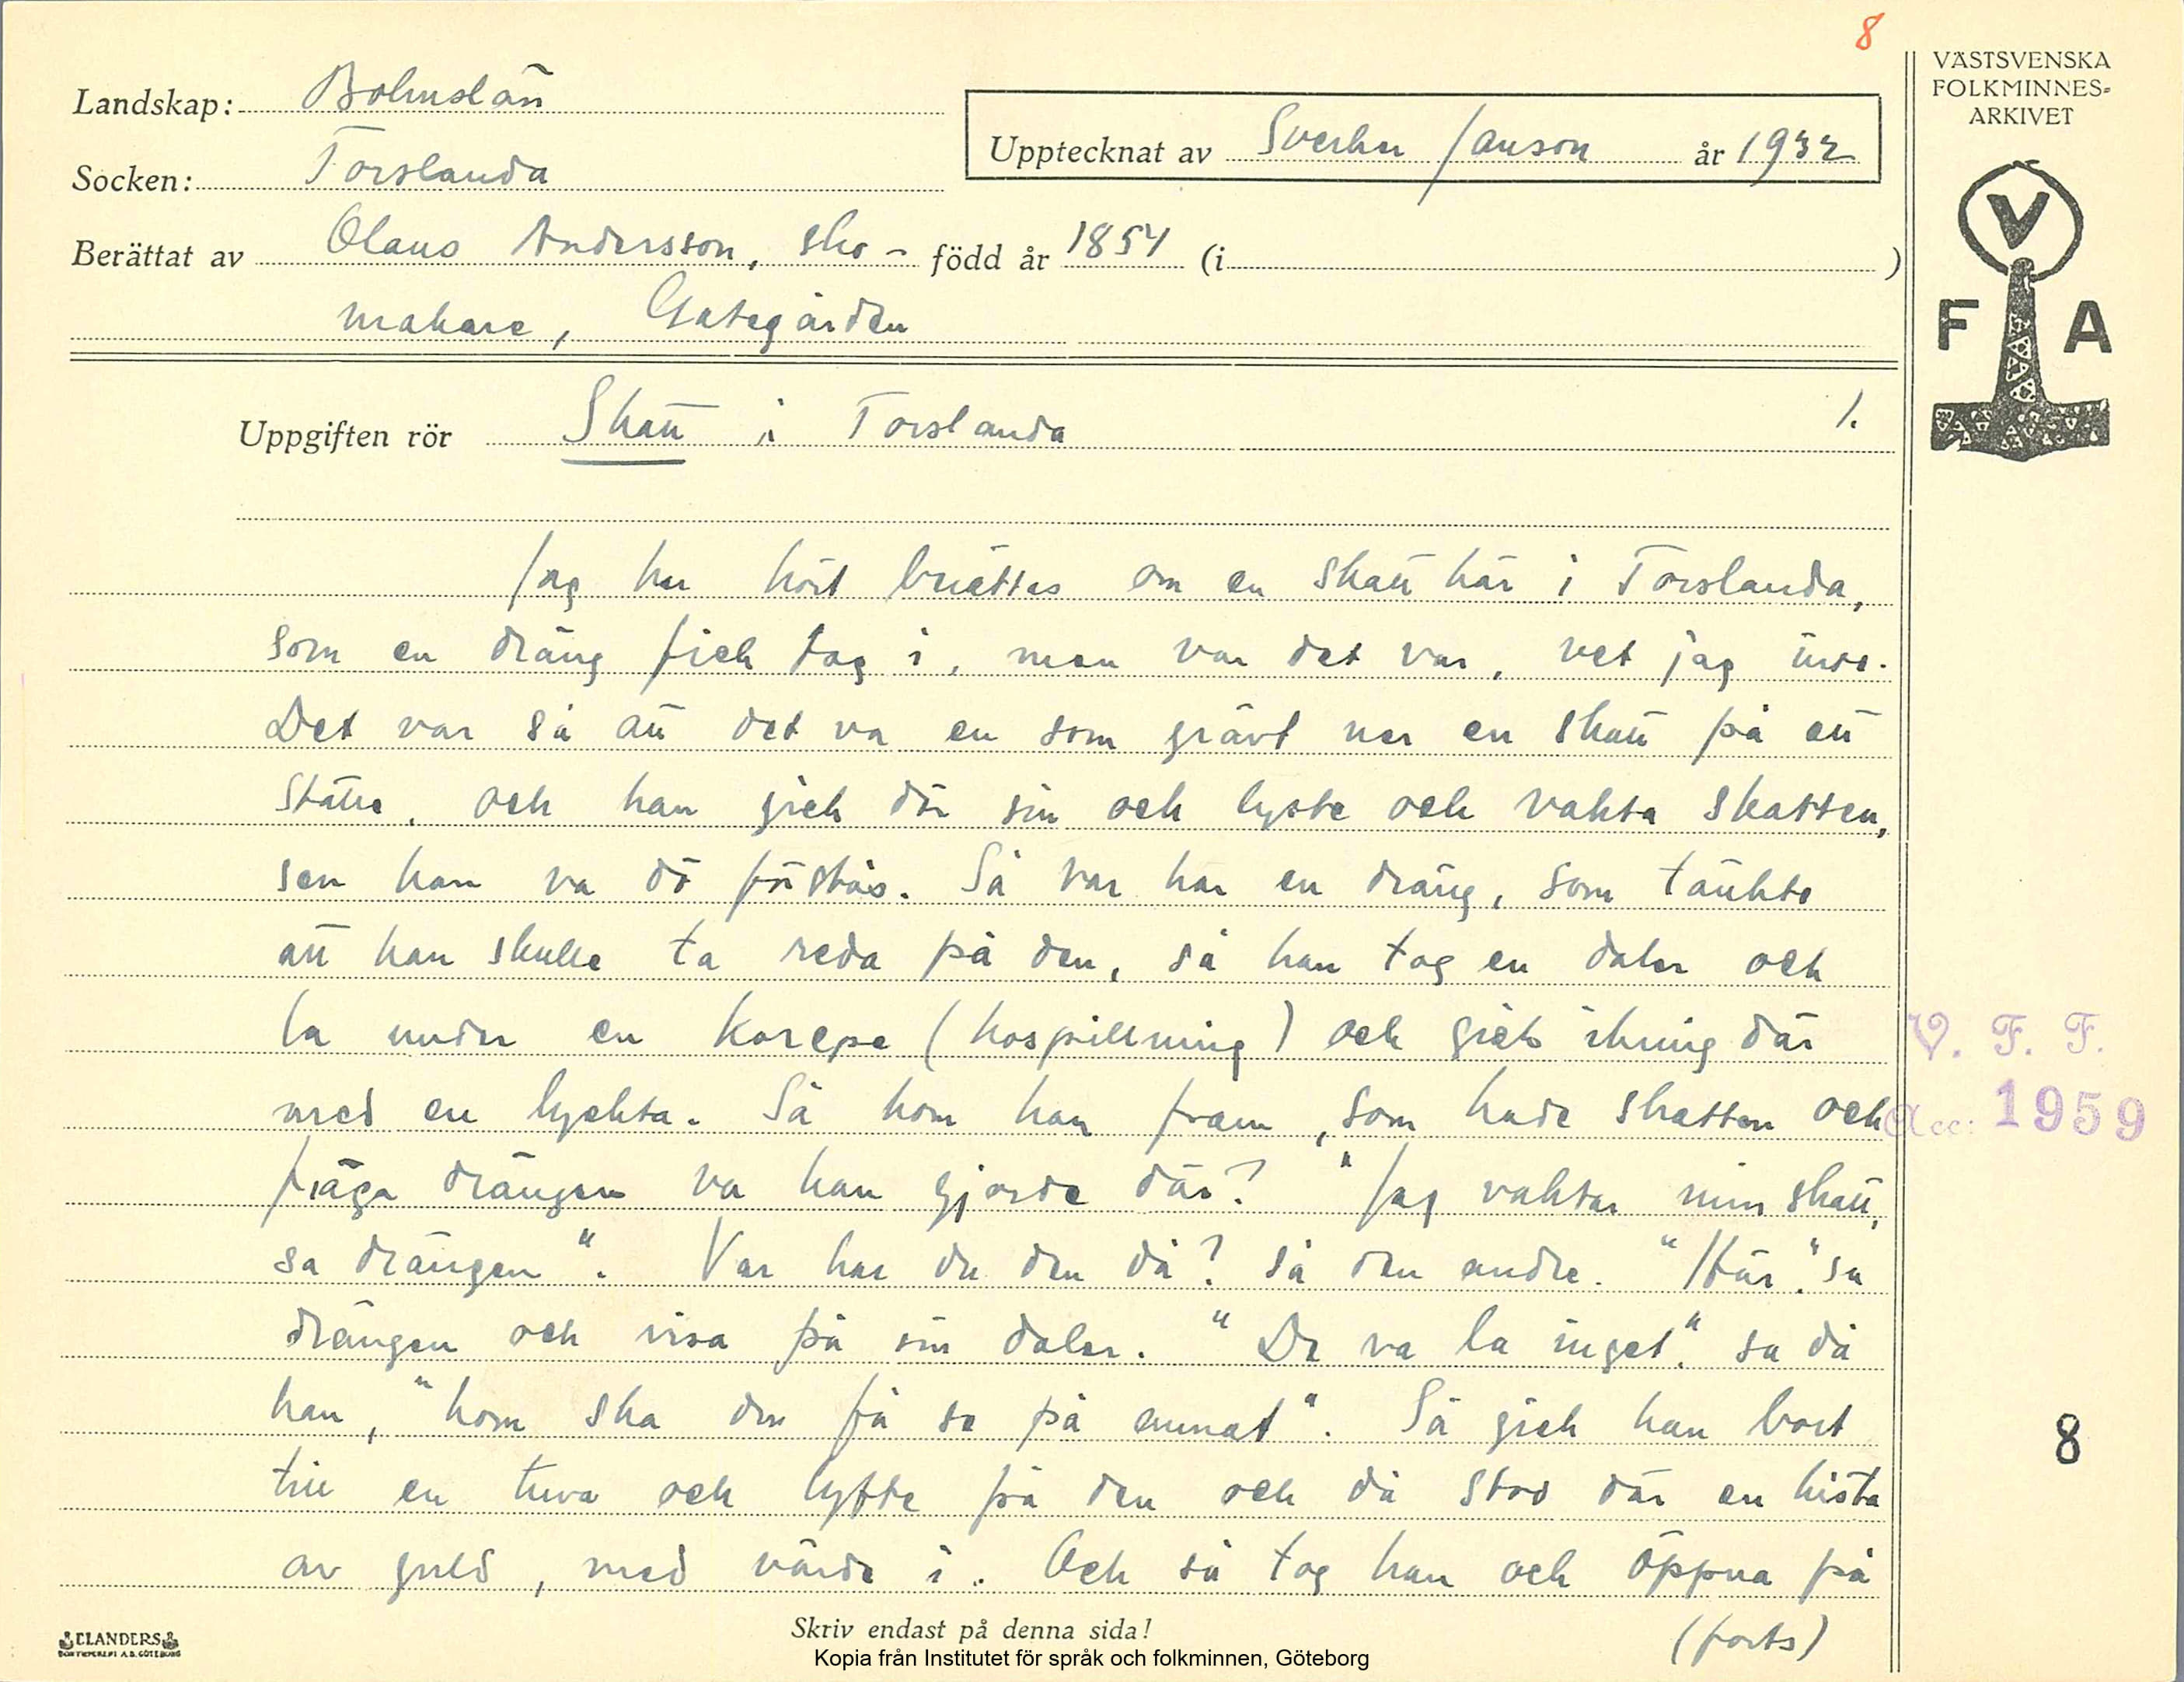 8
VÄSTSVENSKA
FOLKMINNES-
ARKIVET
Landskap: Bohuslän
Upptecknat av Sverker Janson år 1932
Socken: Torslanda
Berättat av Olaus Andersson, sko- född år 1854 (i )
makare, Gategården
V
F A
Uppgiften rör Skatt i Torslanda 1.
Jag har hört berättas om en skatt här i Torslanda,
som en dräng fick tag i, men var det var, vet jag inte.
Det var så att det va en som grävt ner en skatt på ett
ställe, och han gick där sin och lyste och vakta skatten,
sen han va dö förstås. Så var här en dräng, som tänkte
att han skulle ta reda på den, så han tog en daler och
la under en korepe (kospillning) och gick ikring där
med en lyckta. Så kom han fram, som hade skatten och
fråga drängen va han gjorde där? "Jag vaktar min skatt,
sa drängen". Var har du den då? så den andre. "Här." sa
drängen och visa på sin daler. "De va la inget." sa då
han, "kom ska du få se på annat". Så gick han bort
till en tuva och lyfte på den och då stod där en kista
av guld, med värde i. Och så tog han och öppna på
(forts)
V. F. F.
Acc: 1959
8
ELANDERS
BOKTRYCKERI A.B. GÖTEBORG
Skriv endast på denna sida!
Kopia från Institutet för språk och folkminnen, Göteborg